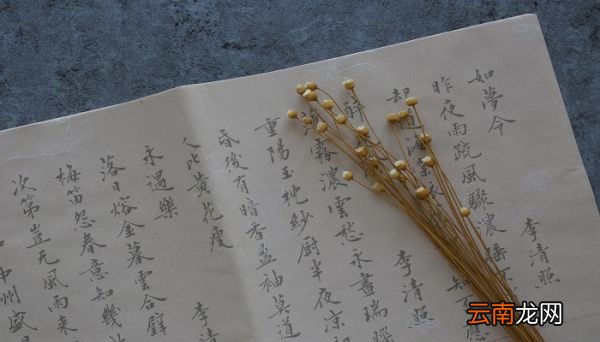 如夢令 李清照
昨夜雨疏風驟濃睡不
却道海棠依 知 應
醉 李清照
薄霧濃雲愁永晝瑞腦
重陽玉枕紗厨半夜涼初
昏後有暗香盈袖莫道
人比黃花瘦
永遇樂 李清
落日熔金暮雲合璧
梅笛怨春意知幾許
次第豈无風雨来
中州盛
云南龙网